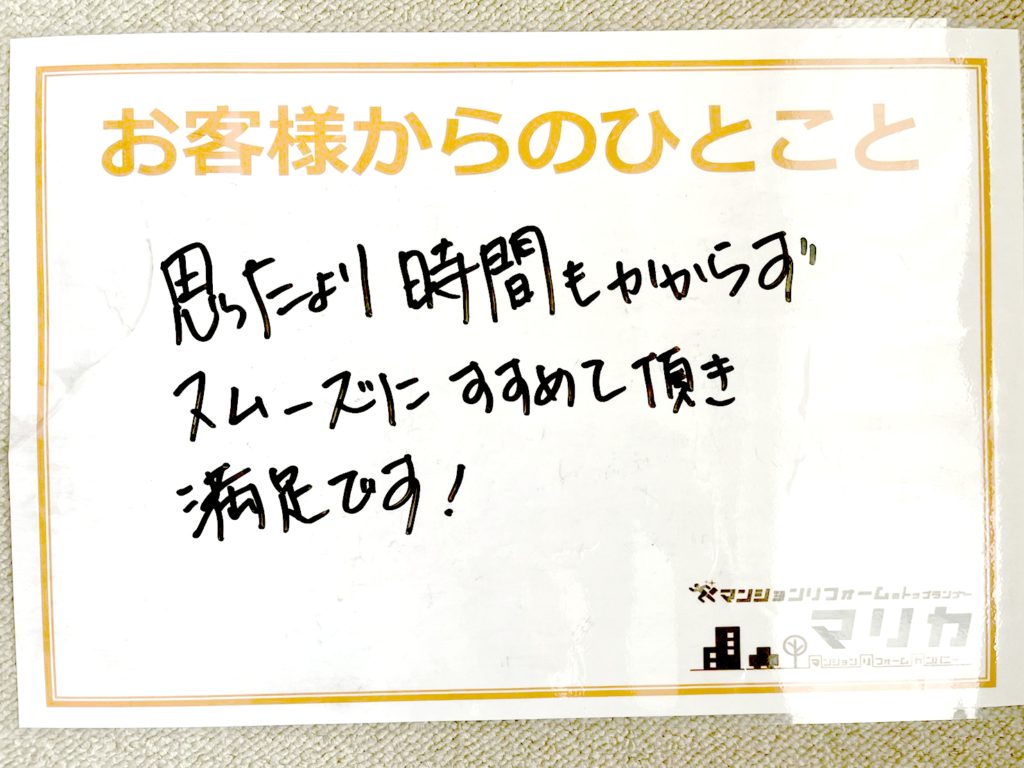 お客様からのひとこと
思ったより時間もかからず
スムーズにすすめて頂き
満足です！
マンションリフォームのトップランナー
マリカ
マンションリフォームカンパニー